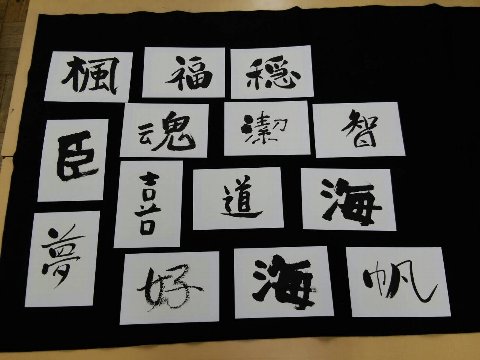 楓 福 穏
臣 魂 潔 智
喜 道 海
夢 好 海 帆